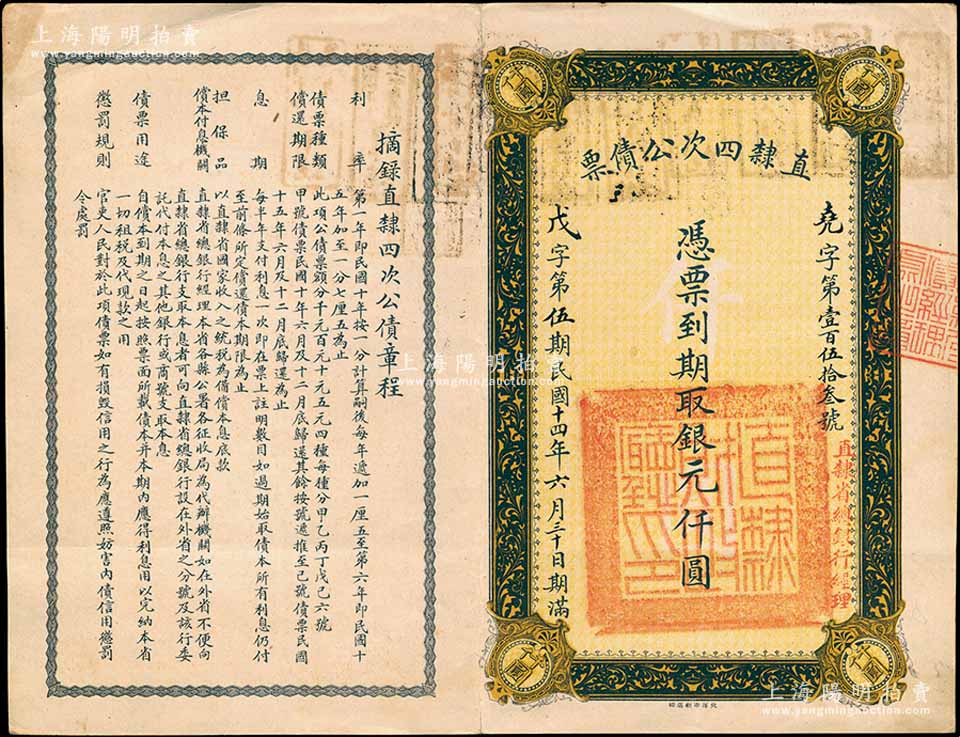 上海陽明拍賣
直隸四次公債票
堯字第壹百伍拾叁號
憑票到期取銀元仟圓
戊字第伍期民國十四年六月三十日期滿
仟
直隸省總銀行經理
北洋印刷局印
摘錄直隸四次公債章程
利率 第一年即民國十年按一分計算嗣後每年遞加一厘五至第六年即民國十
五年加至一分七厘五為止
債票種類 此項公債票額分千元百元十元五元四種每種分甲乙丙丁戊己六號
償還期限 甲號債票民國十年六月及十二月底歸還其餘按號遞推至己號債票民國
十五年六月及十二月底歸還為止
息期 每半年支付利息一次即在票上註明數目如過期始取債本所有利息仍付
至前條所定償還債本期限為止
担保品 以直隸省國家收入之統税為備償本息底款
償本付息機關 直隸省總銀行經理本省各縣公署各征收局為代辦機關如在外省不便向
直隸省總銀行支取本息者可向直隸省總銀行設在外省之分號及該行委
託代付本息之其他銀行或商號支取本息
債票用途 自債本到期之日起按照票面所載債本并本期內應得利息用以完納本省
一切租税及代現款之用
懲罰規則 官吏人民對於此項債票如有損毀信用之行為應遵照妨害內債信用懲罰
令處罰
上海陽明拍賣
www.yangmingauction.com
上海陽明拍賣
www.yangmingauction.com